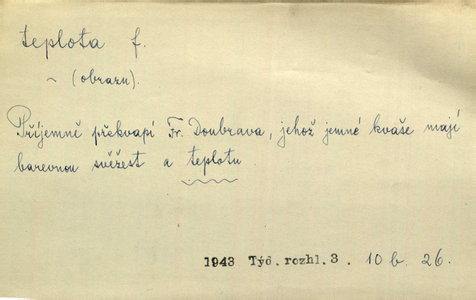 teplota f.
~ (obrazu).
Příjemně překvapí Fr. Doubrava, jehož jemné kvaše mají
barevnou svěžest a teplotu
1943 Týd. rozhl. 3. 10 b. 26.